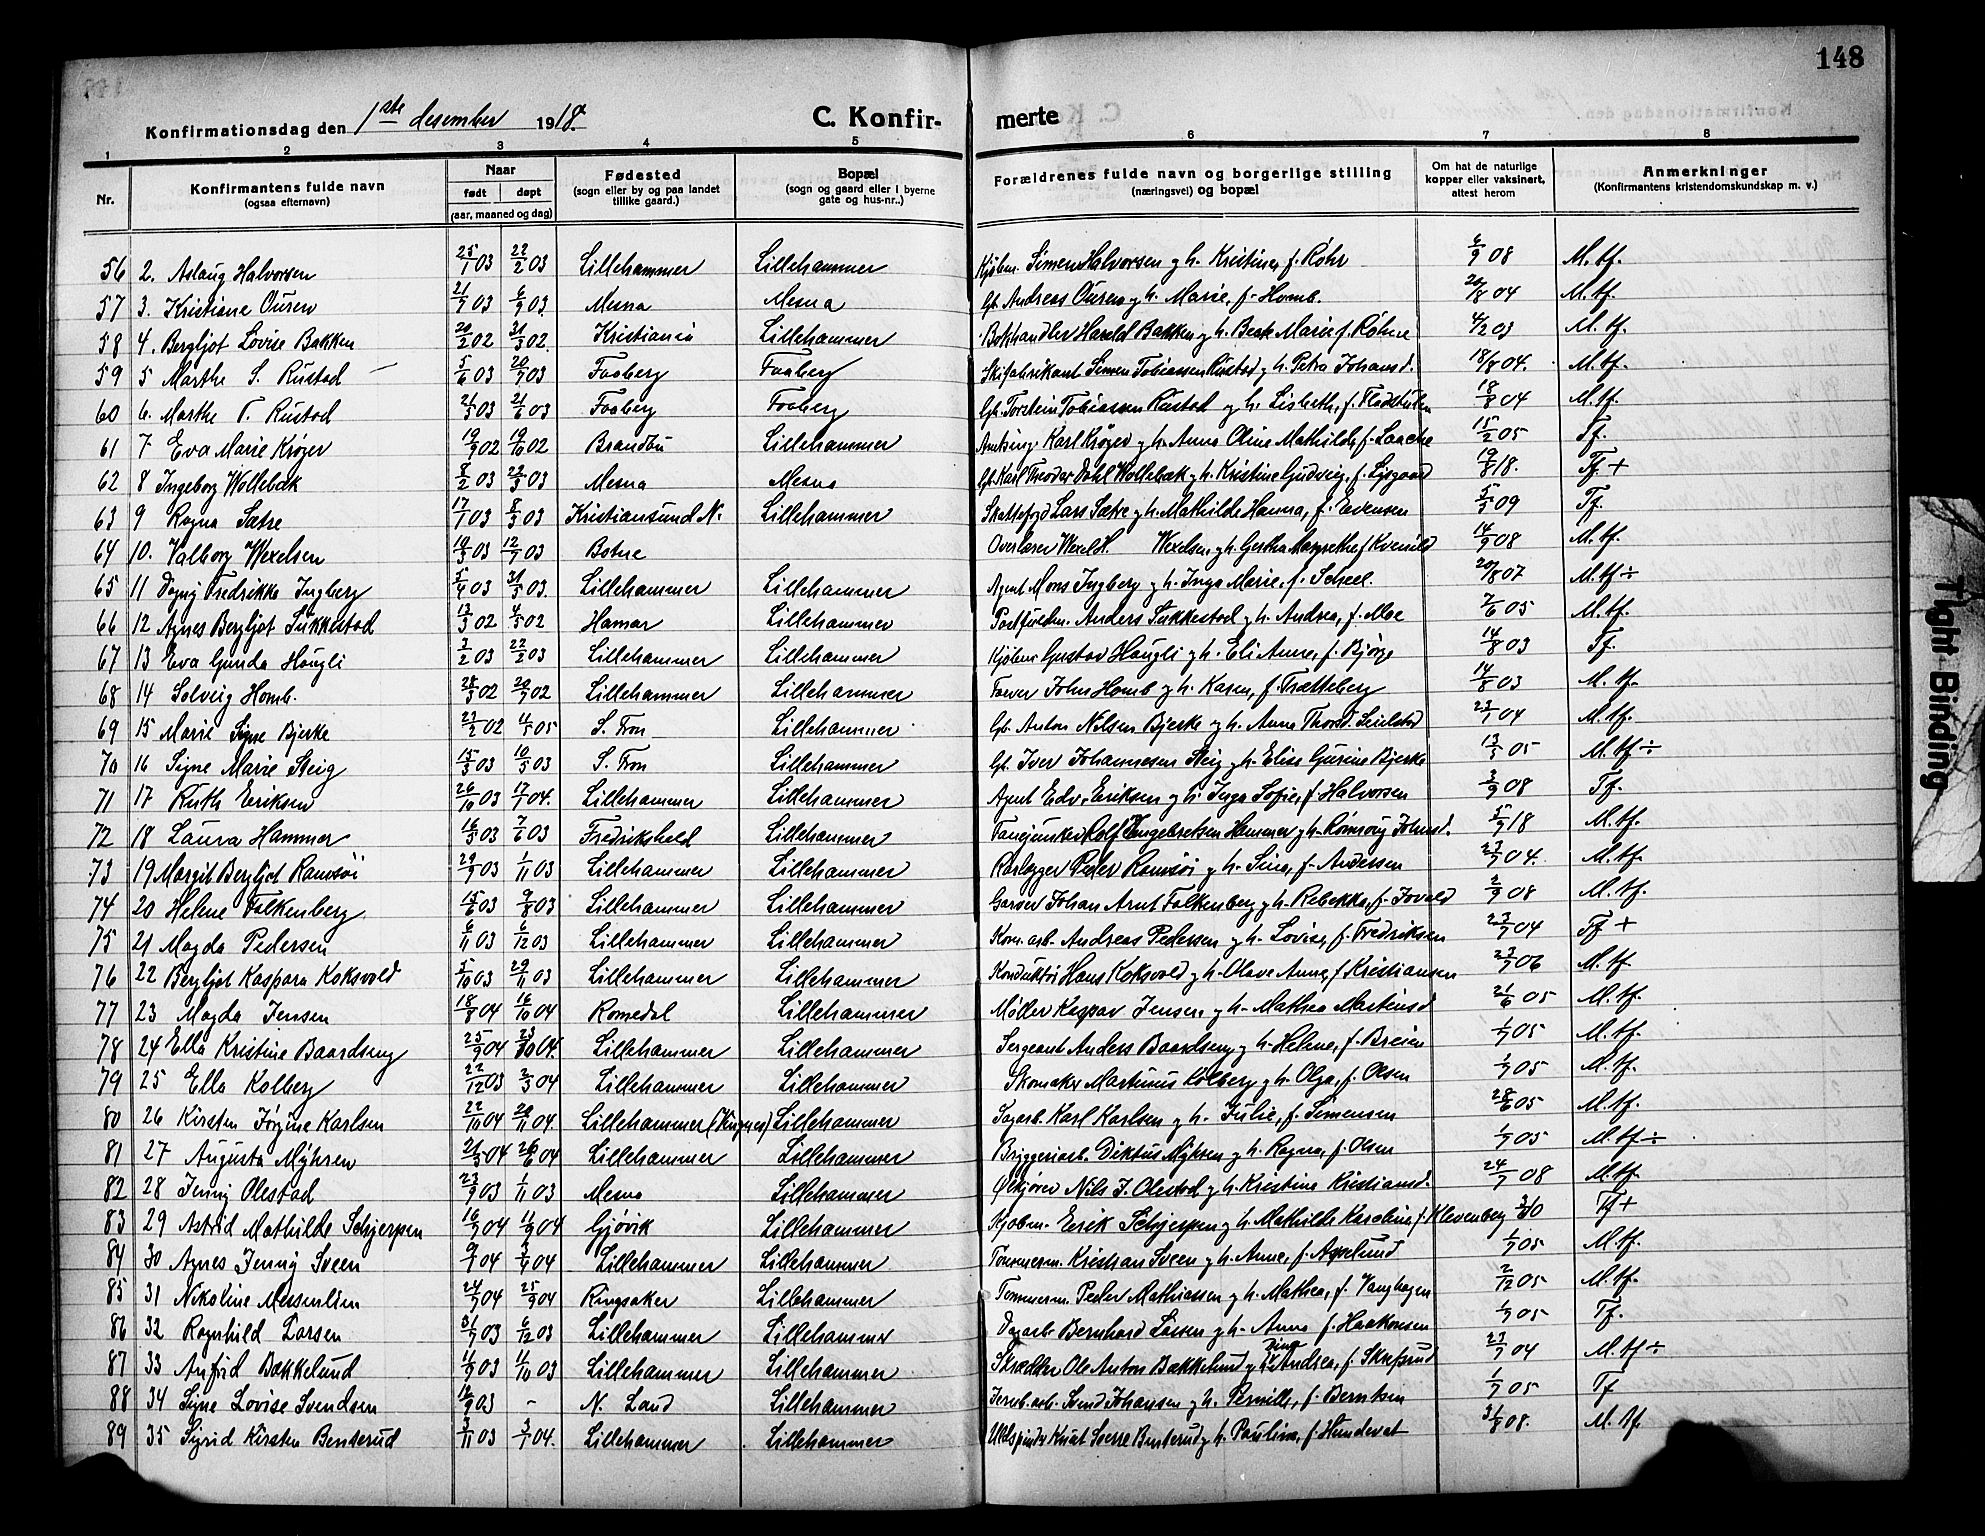 148
Konfirmationsdag den 1ste desember 1918. C. Konfirmerte
1 2 3 4 5 6 7 8
Nr. Konfirmantens fulde navn (ogsaa efternavn) Naar født døpt (aar, maaned og dag) Fødested (sogn eller by og paa landet tillike gaard.) Bopæl (sogn og gaard eller i byerne gate og hus-nr..) Forældrenes fulde navn og borgerlige stilling (næringsvei) og bopæl Om hat de naturlige kopper eller vaksinert, attest herom Anmerkninger (Konfirmantens kristendomskundskap m. v.)
56 2. Aslaug Halvorsen 25/1 03 22/2 03 Lillehammer Lillehammer Kjøbm. Simen Halvorsen og h. Kristine, f. Røhr 6/9 08 M. tf.
57 3. Kristiane Ouren 21/7 03 6/9 03 Mesna Mesna Gb. Andreas Ouren og h. Marie, f. Homb. 20/8 04 M. tf.
58 4. Bergljot Lovise Bakken 20/2 02 31/3 02. Kristiania Lillehammer Bokhandler Harald Bakken og h. Marie f. Røhne 4/2 03 M. tf.
59 5 Marthe S. Rustad 5/6 03 20/7 03 Faaberg Faaberg Skifabrikant Simen Tobiassen Rustad og h. Petra Johansd. 18/8 04. M. tf.
60 6. Marthe T. Rustad 21/5 03 21/6 03 Faaberg Faaberg Gb. Torstein Tobiassen Rustad og h. Lisbeth, f. Flødstuen 18/8 04 M. tf.
61 7 Eva Marie Krøger 19/9 02 19/10 02 Brandbu Lillehammer Amtsing Karl Krøger og h. Anna Oline Mathilde, f. Laache 15/2 05 Tf.
62 8 Ingeborg Wollebæk 8/2 03 22/3 03 Mesna Mesna Gb. Karl Theodor Dahl Wollebæk og h. Kristine Gudveig, f. Lysgaard 19/8 18. Tf. +
63 9 Ragna Sætre 17/1 03 8/3 03 Kristiansund N. Lillehammer Skattefogd Lars Sætre og h. Mathilde Hanna, f. Evensen 5/5 09 Tf.
64 10. Valborg Wexelsen 19/5 03 12/7 03 Botne Overlærer Wexelsen og h. Gertha Margrethe f. Kvenild 14/9 08 M. tf.
65 11 Dagny Fredrikke Ingberg 5/4 03 31/5 03. Lillehammer Lillehammer Agent Mons Ingberg og h. Inga Marie, f. Scheel. 20/8 07 M. tf ÷
66 12 Agnes Bergljot Sukkestad 13/3 02 4/5 02 Hamar Lillehammer Postfuldm. Anders Sukkestad og h. Andrea, f. Moe 7/6 05 M. tf.
67 13 Eva Gunda Haugli 2/2 03 22/2 03 Lillehammer Lillehammer Kjøbm. Gustav Haugli og h. Eli Anne, f. Bjørge 14/8 03 Tf.
68 14 Solveig Homb. 28/5 02 20/7 02 Lillehammer Lillehammer Farver John Homb og h. Karen, f. Trætteberg 14/8 03 M. tf.
69 15 Marie Signe Bjerke 27/2 02 4/5 05 S. Fron Lillehammer Gb. Anton Nilsen Bjerke og h. Anne Thorsd. 23/7 04 M. tf.
70 16 Signe Marie Steig 15/3 03 10/5 03 S. Fron Lillehammer Gb. Iver Johannesen Steig og h. Elise Gurine Bjerke 13/5 05 M. tf ÷
71 17 Ruth Eriksen 26/10 03 17/1 04. Lillehammer Lillehammer Agent Edv. Eriksen og h. Inga Sofie, f. Halvorsen 3/9 08 Tf.
72 18 Laura Hammer 16/5 03 7/6 03 Fredrikshald Lillehammer Fanejunker Rolf Engebretsen Hammer og h. Rønnaug Johnsd. 5/9 18 M. tf.
73 19 Margit Bergljot Ramsøi 29/9 03 1/11 03 Lillehammer Lillehammer Rørlægger Peder Ramsøi og h. Sina, f. Andersen 23/7 04. M. tf.
74 20 Helene Falkenberg 15/6 03 9/8 03 Lillehammer Lillehammer Garver Johan Arnt Falkenberg og h. Rebekka, f. Jovold 2/9 08 M. tf.
75 21 Magda Pedersen 6/11 03 6/12 03 Lillehammer Lillehammer Kom. arb. Andreas Pedersen og h. Lovise, f. Fredriksen 23/7 04 Tf +
76 22 Bergljot Kaspara Koksvold 5/10 03 29/11 03 Lillehammer Lillehammer Konduktør Hans Koksvold og h. Olave Anne, f. Kristiansen 23/7 06 M. tf.
77 23 Magda Jensen 18/8 04 16/10 04 Romedal Lillehammer Møller Kaspar Jensen og h. Mathea Martinsd 21/6 05 M. tf.
78 24 Ella Kristine Baardseng 25/9 04 23/10 04. Lillehammer Lillehammer Sergeant Anders Baardseng og h. Helene, f. Breien 1/7 05 M. tf.
79 25 Ella Kolberg 22/12 03 2/3 04 Lillehammer Lillehammer Skomaker Martinus Kolberg og h. Olga, f. Olsen 1/7 05 M. tf.
80 26 Kirsten Jørgine Karlsen 22/10 04 20/11 04. Lillehammer (Vingnes) Lillehammer Sagarb. Karl Karlsen og h. Julie, f. Simensen 28/6 05 M. tf.
81 27 Augusta Myhren 21/5 04 26/6 04 Lillehammer Lillehammer Bryggeriarb. Diktus Myhren og h. Ragna, f. Olsen 1/7 05 M. tf ÷
82 28 Jenny Olestad 23/9 03 1/11 03 Mesna Lillehammer Ølkjører Nils J. Olestad og h. Kristine Kristiansd. 24/7 08 M. tf.
83 29 Astrid Mathilde Schjerpen 16/7 04 11/9 04 Gjøvik Lillehammer Kjøbm. Eerik Schjerpen og h. Mathilde Karoline f. Klevenberg Tf +
84 30 Agnes Jenny Sveen 9/7 04 Lillehammer Lillehammer Tømmerm. Kristian Sveen og h. Anne, f. Asselund 1/7 05 M. tf.
85 31 Nikoline Messenlien 24/7 04 25/9 04 Ringsaker Lillehammer Tømmerm. Peder Mathiassen og h. Mathea, f. Vanghagen 2/12 05 M. tf.
86 32 Ragnhild Larsen 31/7 03 6/12 03 Lillehammer Lillehammer Dagarb. Bernhard Larsen og h. Anna f. Haakonsen 1/7 05 Tf.
87 33 Anfrid Bækkelund 11/9 03 11/10 03 Lillehammer Lillehammer Skrædder Ole Anton Bækkelund og h. Andrea, f. Skefsrud 23/7 04 M. tf ÷
88 34 Signe Lovise Svendsen 16/9 03 - N. Land Lillehammer Jernb. arb. Svend Johansen og h. Pernille, f. Berntsen 1/7 05 Tf
89 35 Sigrid Kirsten Benterud 3/11 03 3/1 04. Lillehammer Lillehammer Uldspinder Knut Sverre Benterud og h. Pauline, f. Hundevat 31/8 08. M. tf.
Tight Binding